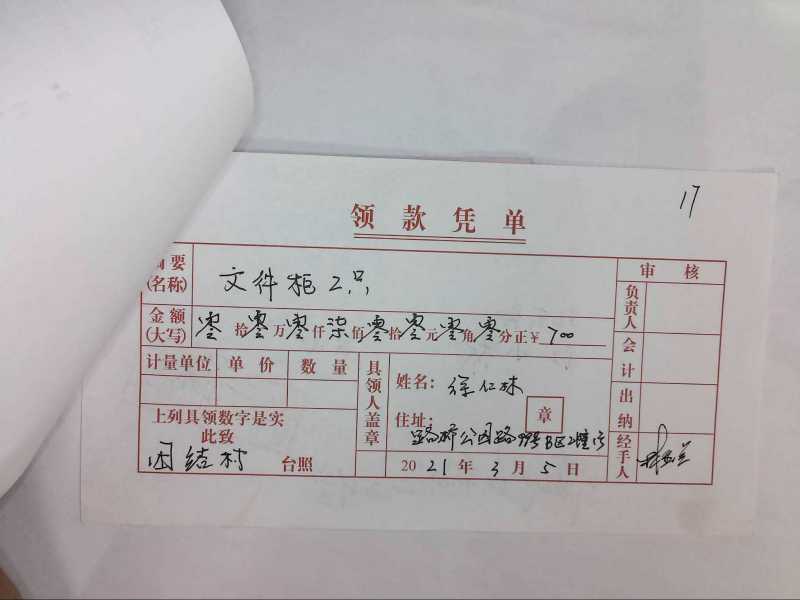 17
领款凭单
摘要(名称) 文件柜2只 审核
金额(大写) 零拾零万零仟柒佰零拾零元零角零分正¥700 负责人
计量单位 单价 数量 具领人盖章 姓名：徐仁林 会计
上列具领数字是实 住址： 章 出纳
此致 路桥公园路99号B区2幢
团结村 台照 2021年3月5日 经手人